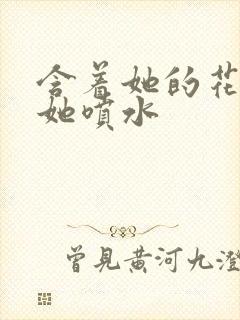 含着她的花
她喷水
曾見黄河九澄